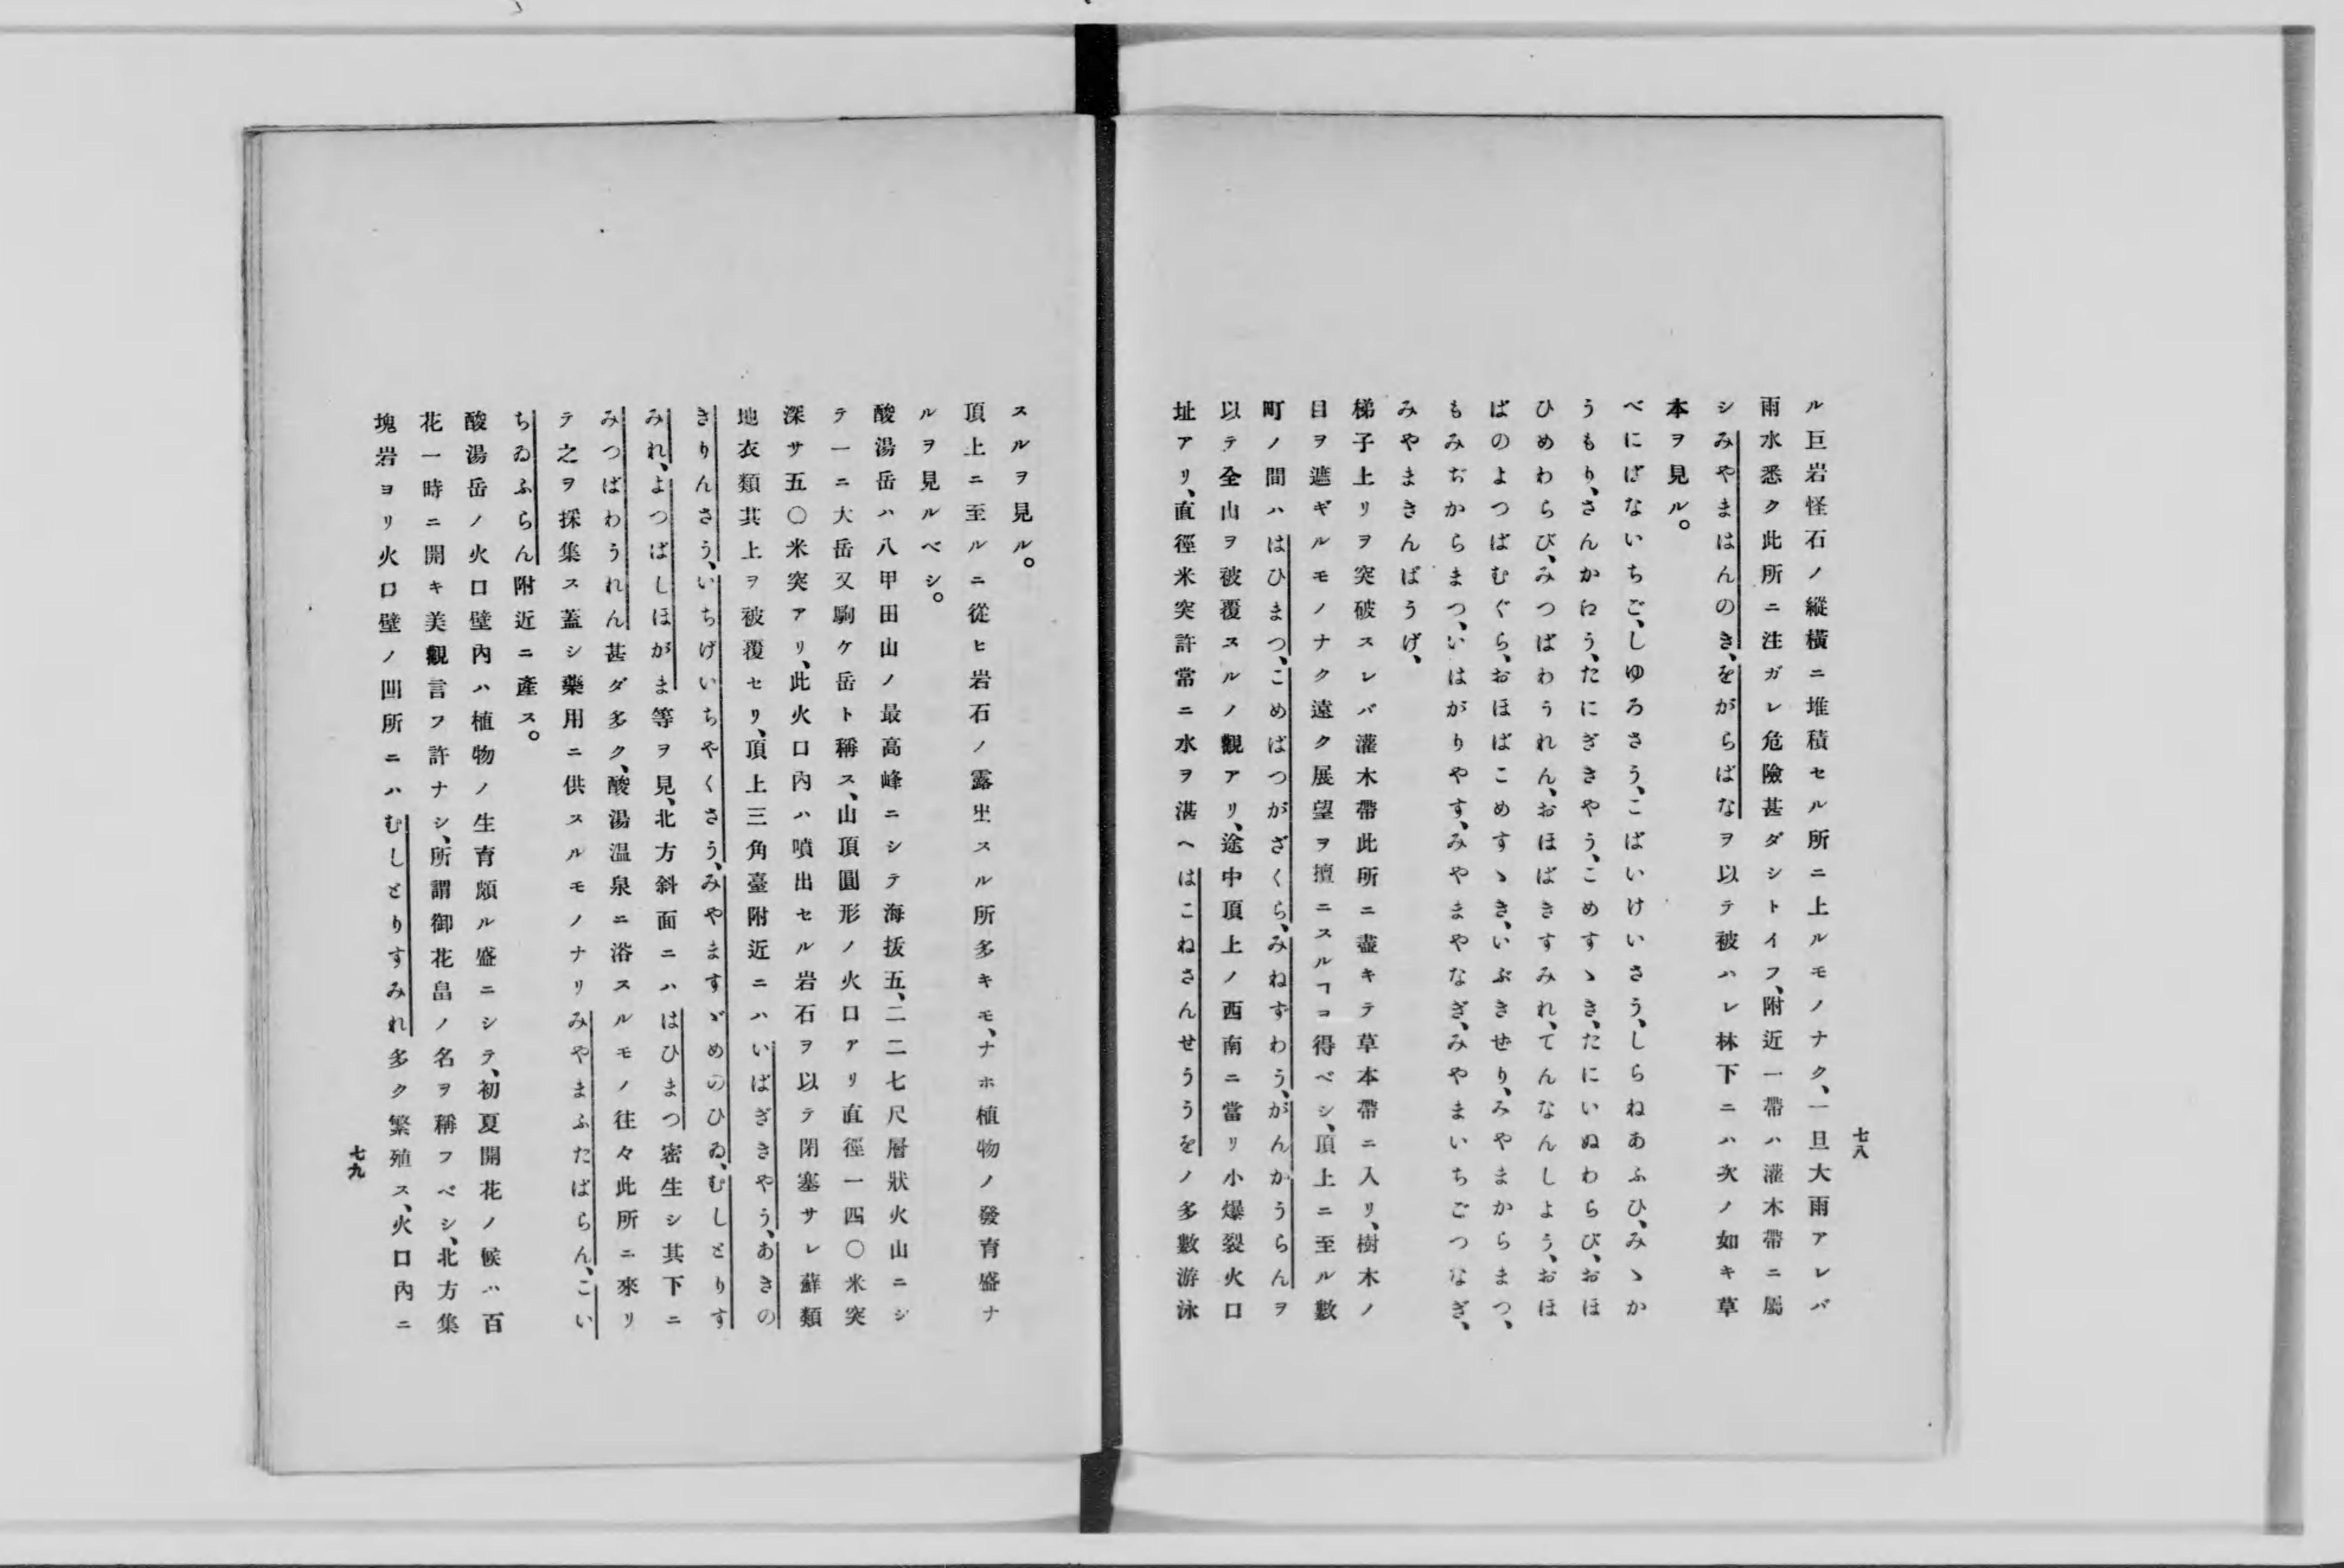 七八
ル巨岩怪石ノ縱橫ニ堆積セル所ニ上ルモノナク、一旦大雨アレバ
雨水悉ク此所ニ注ガレ危險甚ダシトイフ、附近一帶ハ灌木帶ニ屬
シみやまはんのき、をがらばなヲ以テ被ハレ林下ニハ次ノ如キ草
本ヲ見ル。
べにばないちご、しゆろさう、こばいけいさう、しらねあふひ、みゝか
うもり、さんかにう、たにぎきやう、こめすゝき、たにいぬわらび、おほ
ひめわらび、みつばわうれん、おほばきすみれ、てんなんしよう、おほ
ばのよつばむぐら、おほばこめすゝき、いぶきせり、みやまからまつ、
もみぢからまつ、いはがりやす、みやまやなぎ、みやまいちごつなぎ、
みやまきんばうげ、
梯子上リヲ突破スレバ灌木帶此所ニ盡キテ草本帶ニ入リ、樹木ノ
目ヲ遮ギルモノナク遠ク展望ヲ擅ニスルヿコ得ベシ、頂上ニ至ル數
町ノ間ハはひまつ、こめばつがざくら、みねずわう、がんかうらんヲ
以テ全山ヲ被覆スルノ觀アリ、途中頂上ノ西南ニ當リ小爆裂火口
址アリ、直徑米突許常ニ水ヲ湛ヘはこねさんせううをノ多數游泳
スルヲ見ル。
頂上ニ至ルニ從ヒ岩石ノ露出スル所多キモ、ナホ植物ノ發育盛ナ
ルヲ見ルベシ。
酸湯岳ハ八甲田山ノ最高峰ニシテ海拔五、二二七尺層狀火山ニシ
テ一ニ大岳又駒ケ岳ト稱ス、山頂圓形ノ火口アリ直徑一四〇米突
深サ五〇米突アリ、此火口內ハ噴出セル岩石ヲ以テ閉塞サレ蘚類
地衣類其上ヲ被覆セリ、頂上三角臺附近ニハいばぎきやう、あきの
きりんさう、いちげいちやくさう、みやますゞめのひゐ、むしとりす
みれ、よつばしほがま等ヲ見、北方斜面ニハはひまつ密生シ其下ニ
みつばわうれん甚ダ多ク、酸湯溫泉ニ浴スルモノ往々此所ニ來リ
テ之ヲ採集ス蓋シ藥用ニ供スルモノナリみやまふたばらん、こい
ちゐふらん附近ニ產ス。
酸湯岳ノ火口壁內ハ植物ノ生育頗ル盛ニシテ、初夏開花ノ候ハ百
花一時ニ開キ美觀言フ許ナシ、所謂御花畠ノ名ヲ稱フベシ、北方集
塊岩ヨリ火口壁ノ凹所ニハむしとりすみれ多ク繁殖ス、火口內ニ
七九